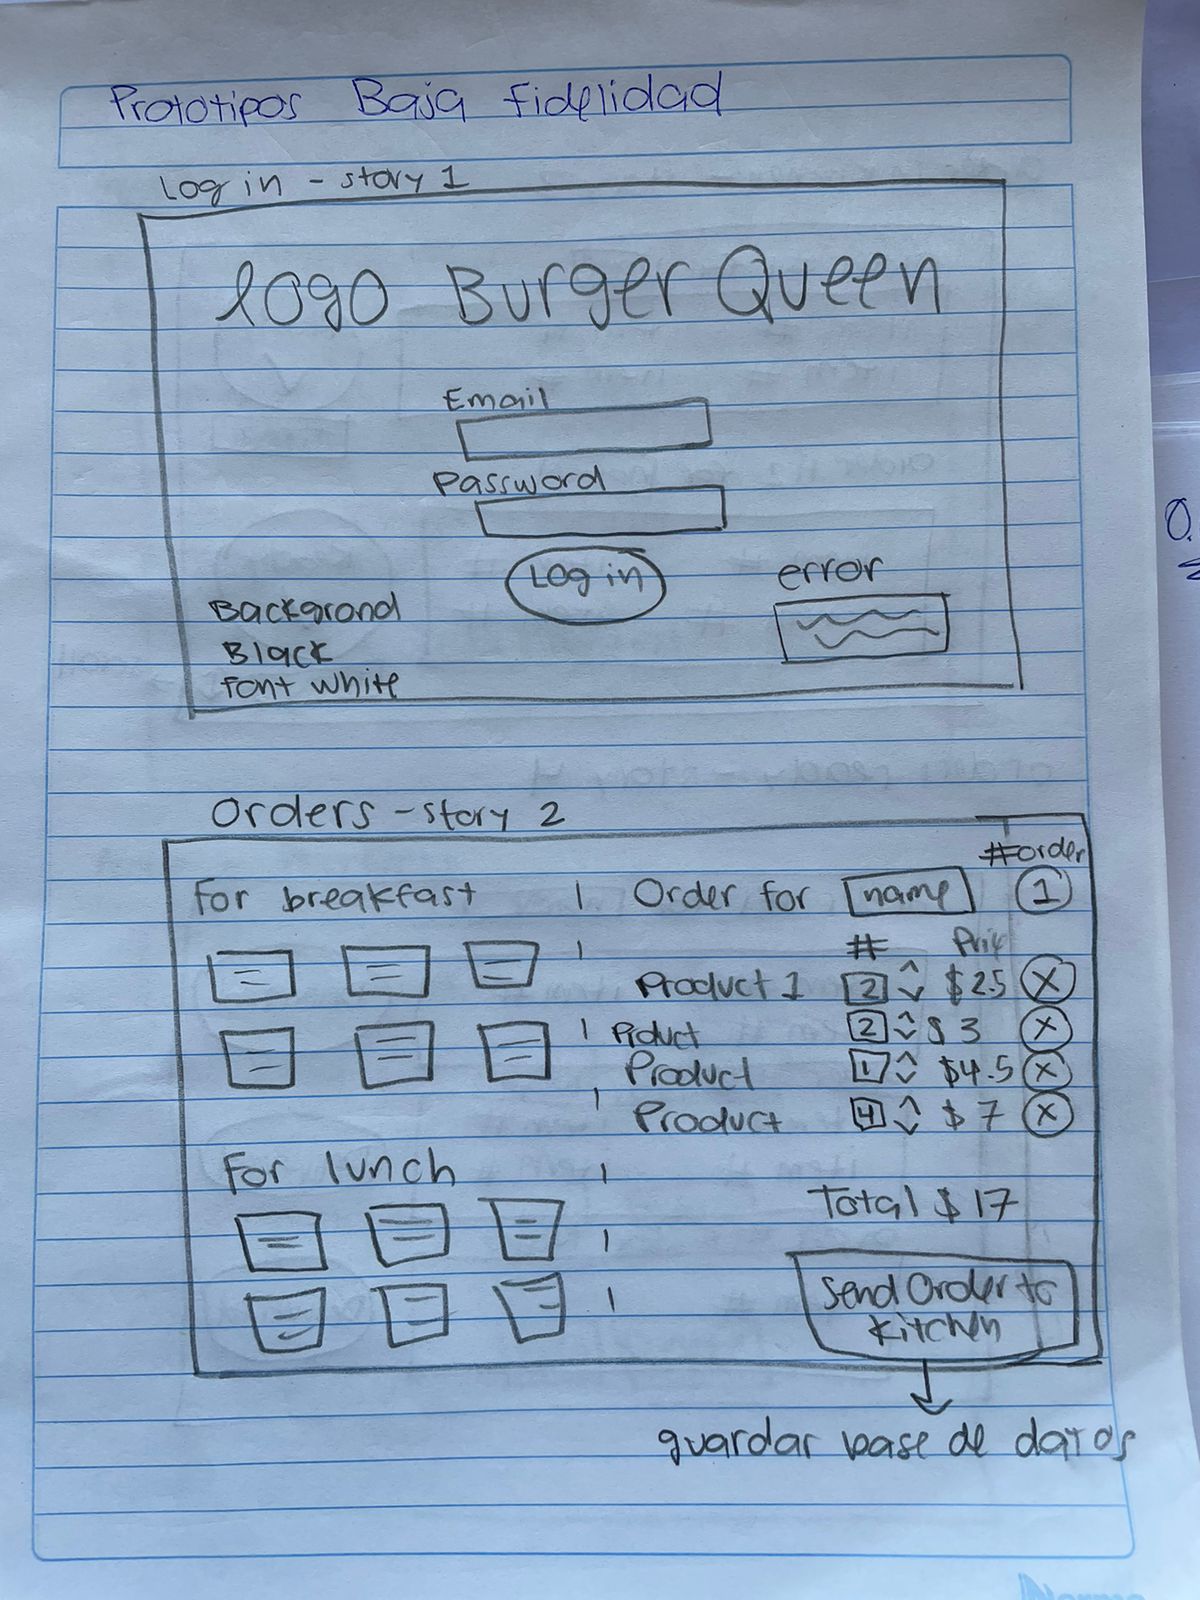 Prototipos Baja fidelidad
Log in - story 1
logo Burger Queen
Email
Password
Log in
error
Backgrond
Black
font white
Orders - story 2
#order
For breakfast
Order for name 1
#
Product 1 2 $2.5 X
Pıduct 2 $ 3 X
Product 1 $4.5 X
Product 4 $ 7 X
For lunch
Total $ 17
Send Order to
Kitchen
guardar base de datos